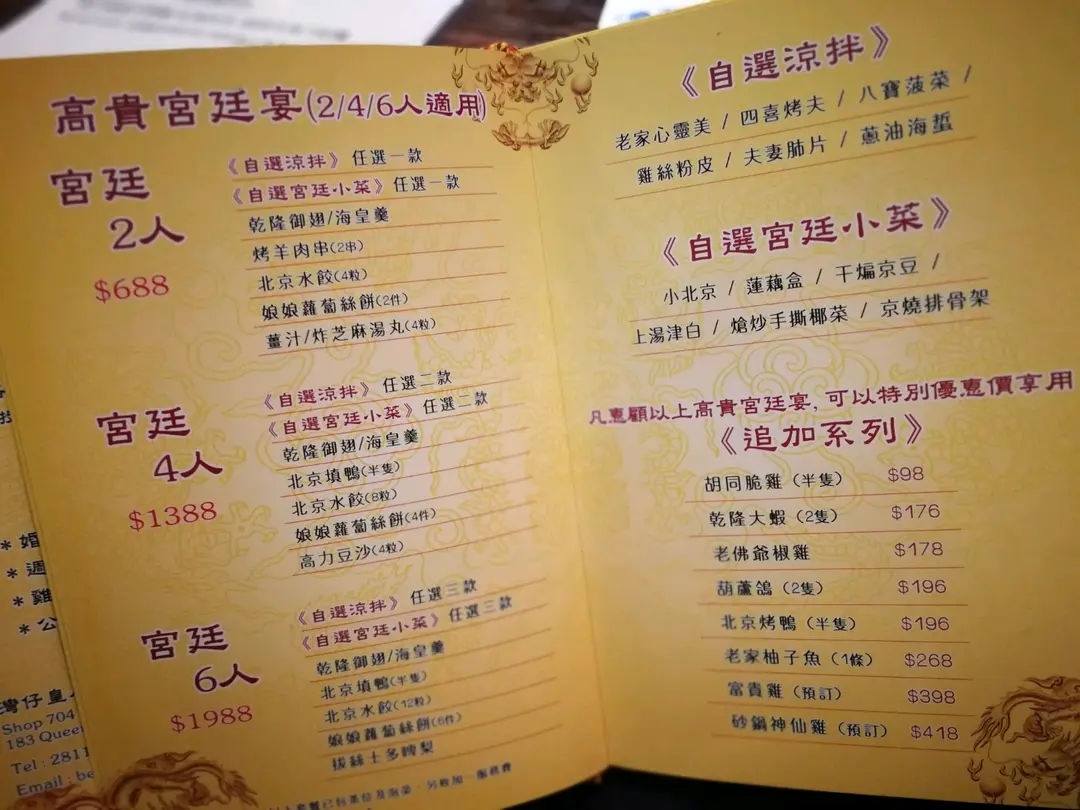 高貴宮廷宴(2/4/6人適用)
宮廷
2人
$688
《自選涼拌》 任選一款
《自選宮廷小菜》 任選一款
乾隆御翅/海皇羹
烤羊肉串(2串)
北京水餃(4粒)
娘娘蘿蔔絲餅(2件)
薑汁/炸芝麻湯丸(4粒)
宮廷
4人
$1388
《自選涼拌》 任選二款
《自選宮廷小菜》 任選二款
乾隆御翅/海皇羹
北京填鴨(半隻)
北京水餃(8粒)
娘娘蘿蔔絲餅(4件)
高力豆沙(4粒)
宮廷
6人
$1988
《自選涼拌》 任選三款
《自選宮廷小菜》 任選三款
乾隆御翅/海皇羹
北京填鴨(半隻)
北京水餃(12粒)
娘娘蘿蔔絲餅(6件)
拔絲士多啤梨
《自選涼拌》
老家心靈美 / 四喜烤夫 / 八寶菠菜 /
雞絲粉皮 / 夫妻肺片 / 蔥油海蜇
《自選宮廷小菜》
小北京 / 蓮藕盒 / 干煸京豆 /
上湯津白 / 熗炒手撕椰菜 / 京燒排骨架
凡惠顧以上高貴宮廷宴, 可以特別優惠價享用
《追加系列》
胡同脆雞 (半隻) $98
乾隆大蝦 (2隻) $176
老佛爺椒雞 $178
葫蘆鴿 (2隻) $196
北京烤鴨 (半隻) $196
老家柚子魚 (1條) $268
富貴雞 (預訂) $398
砂鍋神仙雞 (預訂) $418
* 婚
* 週
* 雞
* 公
灣仔皇
Shop 704
183 Queen
Tel : 2811
Email : be